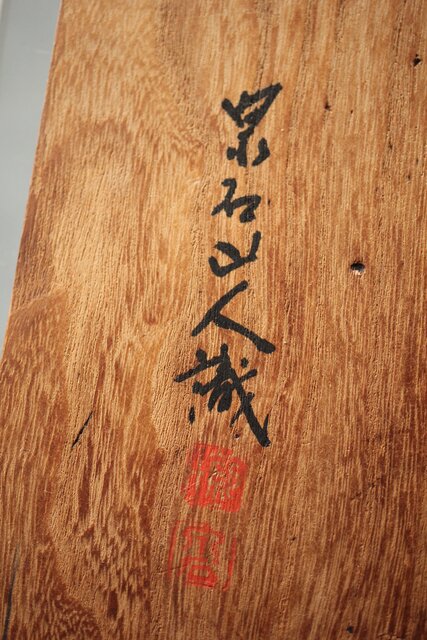 泉石山人識